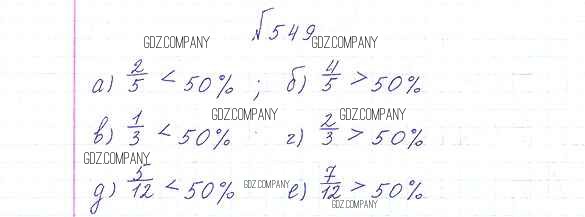 №549
GDZ.COMPANY GDZ.COMPANY
а) 2/5 < 50% ; б) 4/5 > 50%
GDZ.COMPANY GDZ.COMPANY
в) 1/3 < 50% г) 2/3 > 50%
GDZ.COMPANY
д) 5/12 < 50% GDZ.COMPANY е) 7/12 > 50%
GDZ.COMPANY